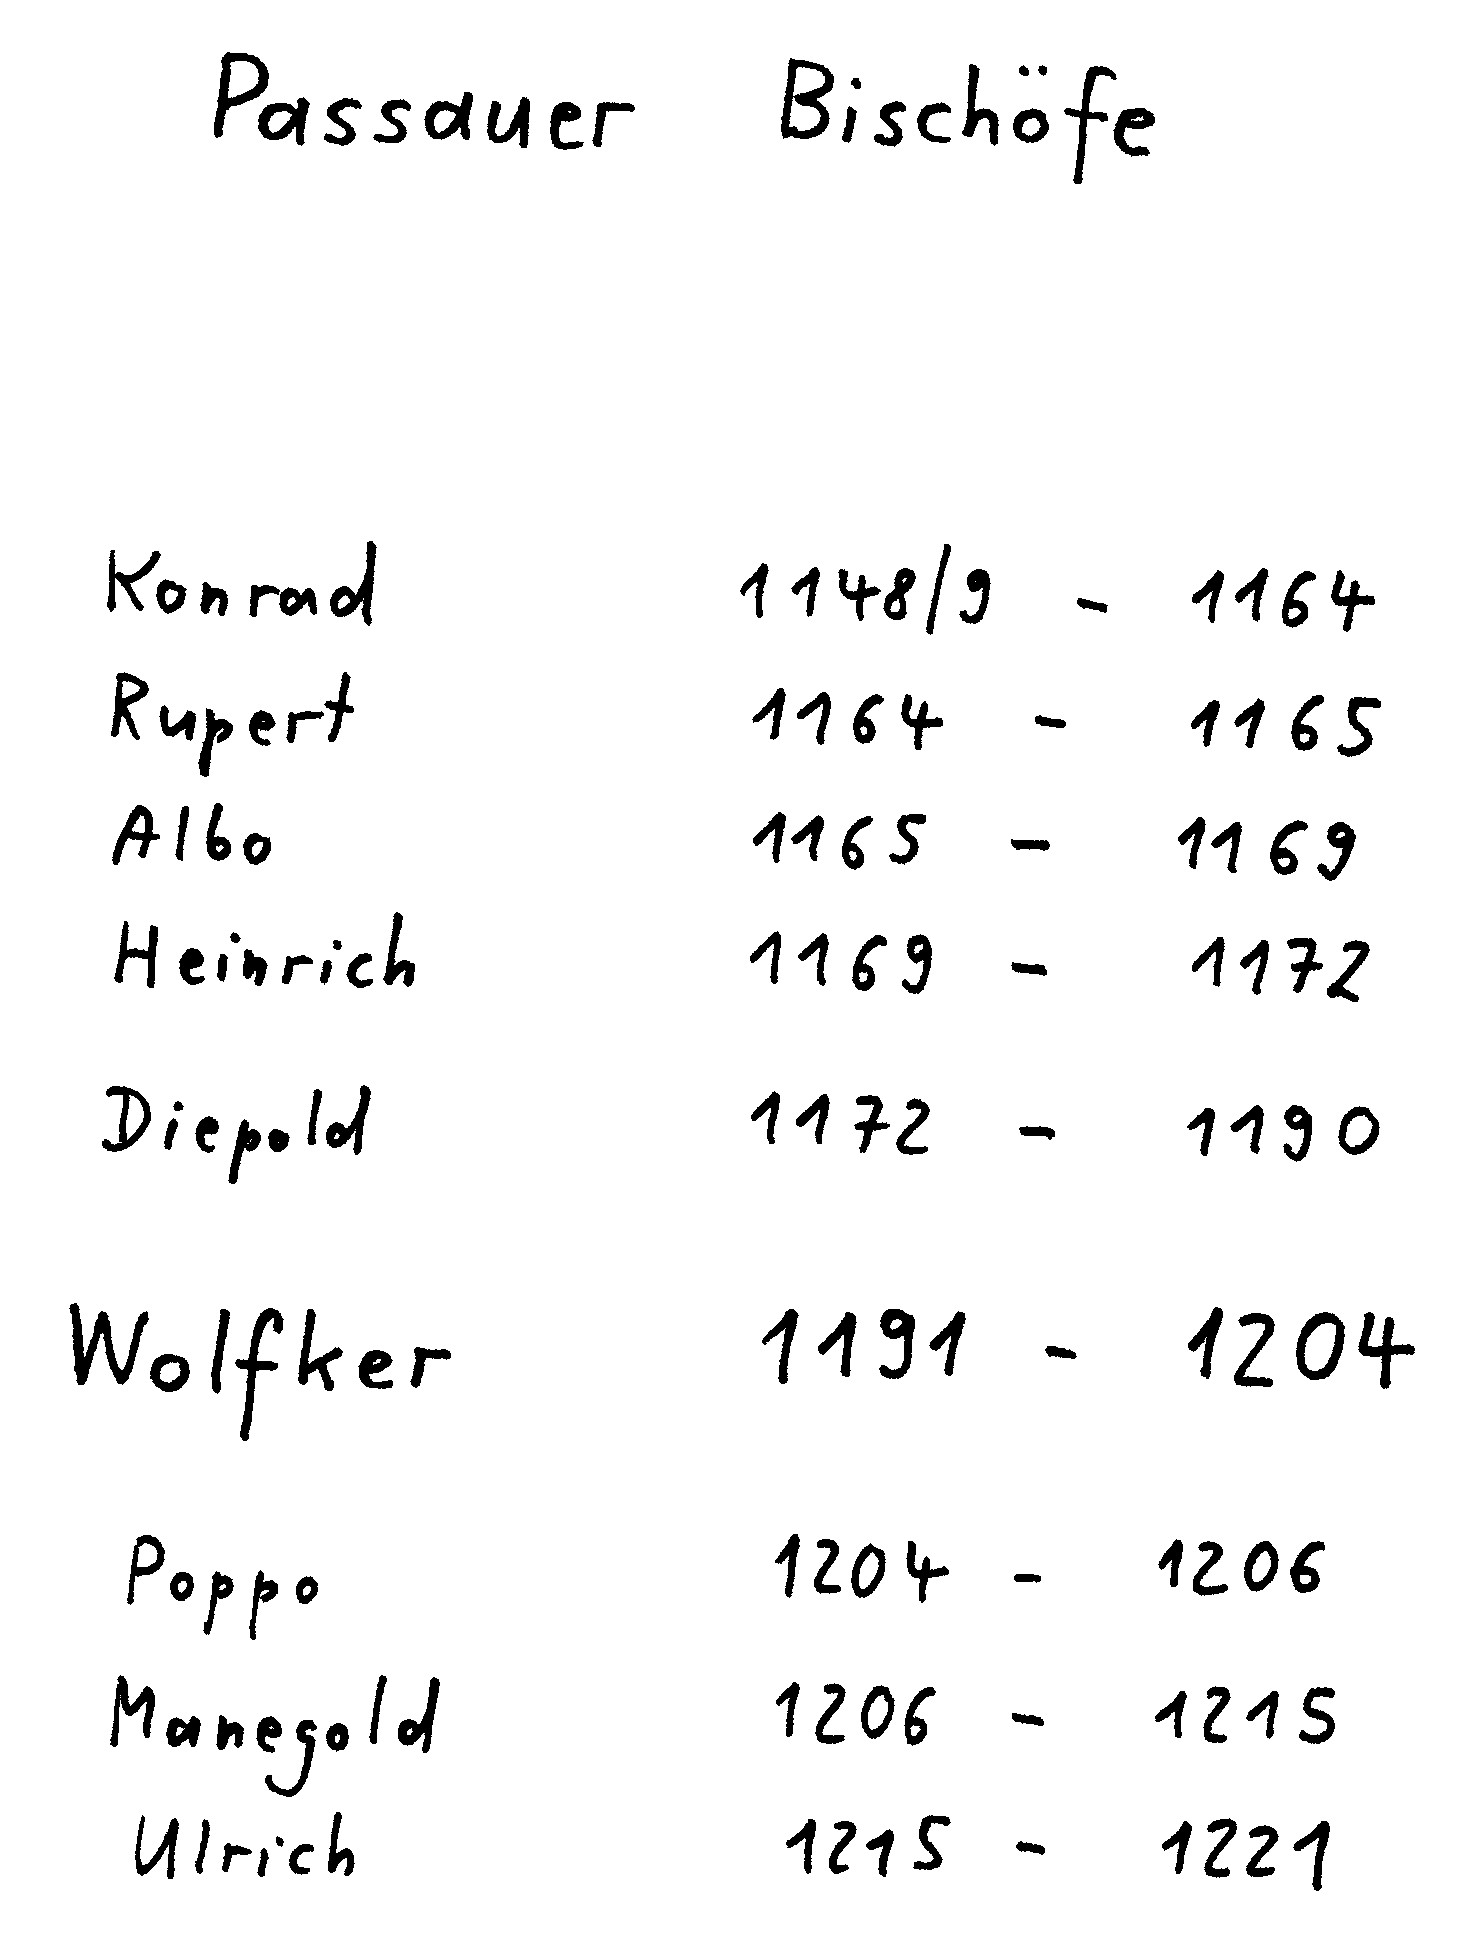 Passauer Bischöfe
Konrad 1148/9 - 1164
Rupert 1164 - 1165
Albo 1165 - 1169
Heinrich 1169 - 1172
Diepold 1172 - 1190
Wolfker 1191 - 1204
Poppo 1204 - 1206
Manegold 1206 - 1215
Ulrich 1215 - 1221